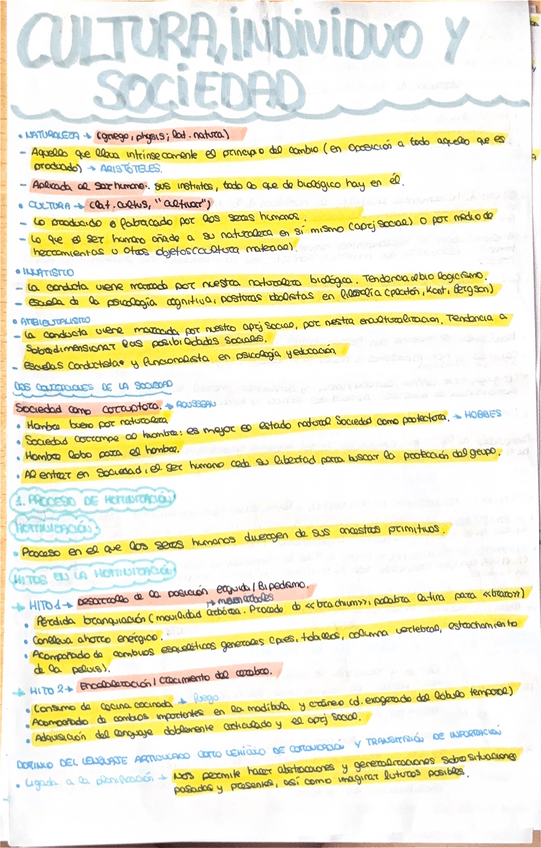 CULTURA, iNDiViDUO Y
SOCiEDAD
• NATURALEZA → (griego, physis; lat. natura)
- Aquello que lleva intrínsecamente el principio del cambio (en oposición a todo aquello que es
producido) → ARISTÓTELES.
- Aplicada al ser humano: sus instintos, todo lo que de biológico hay en él.
• CULTURA → (lat. cultus, "cultivar")
- Lo producido o fabricado por los seres humanos.
- Lo que el ser humano añade a su naturaleza en sí mismo (aprj social) o por medio de
herramientas u otros objetos (cultura material).
• INNATISMO
- La conducta viene marcada por nuestra naturaleza biológica. Tendencia al biologicismo.
- Escuela de la psicología cognitiva, posturas idealistas en filosofía (Platón, Kant, Bergson)
• AMBIENTALISMO
- La conducta viene marcada por nuestro aprj social, por nuestra enculturación. Tendencia a
sobredimensionar las posibilidades sociales.
- Escuelas conductista y funcionalista en psicología y educación
DOS CONCEPCIONES DE LA SOCIEDAD
Sociedad como corruptora. → ROUSSEAU
• Hombre bueno por naturaleza
• Sociedad corrompe al hombre: es mejor el estado natural Sociedad como protectora. → HOBBES
• Hombre lobo para el hombre.
• Al entrar en sociedad, el ser humano cede su libertad para buscar la protección del grupo.
1. PROCESO DE HOMINIZACIÓN
HOMINIZACIÓN
• Proceso en el que los seres humanos divergen de sus ancestros primitivos.
HITOS EN LA HOMINIZACIÓN
→ HITO 1 → Desarrollo de la posición erguida / Bipedismo.
• Pérdida branquiación (movilidad arbórea. Procede de <<brachium>>, palabra latina para <<brazo>>)
• Conlleva ahorro energético.
• Acompañado de cambios esqueléticos generales (pies, tobillos, columna vertebral, estrechamiento
de la pelvis).
→ HITO 2 → Encefalización / Crecimiento del cerebro.
• Consumo de cocina cocinada → fuego
• Acompañado de cambios importantes en la madíbula y cráneo (d. exagerado del lóbulo temporal)
• Adquisición del lenguaje doblemente articulado y el aprj social.
DOMINIO DEL LENGUAJE ARTICULADO COMO VEHÍCULO DE COMUNICACIÓN Y TRANSMISIÓN DE INFORMACIÓN
• Ligada a la planificación → Nos permite hacer abstracciones y generalizaciones sobre situaciones
pasadas y presentes, así como imaginar futuros posibles.